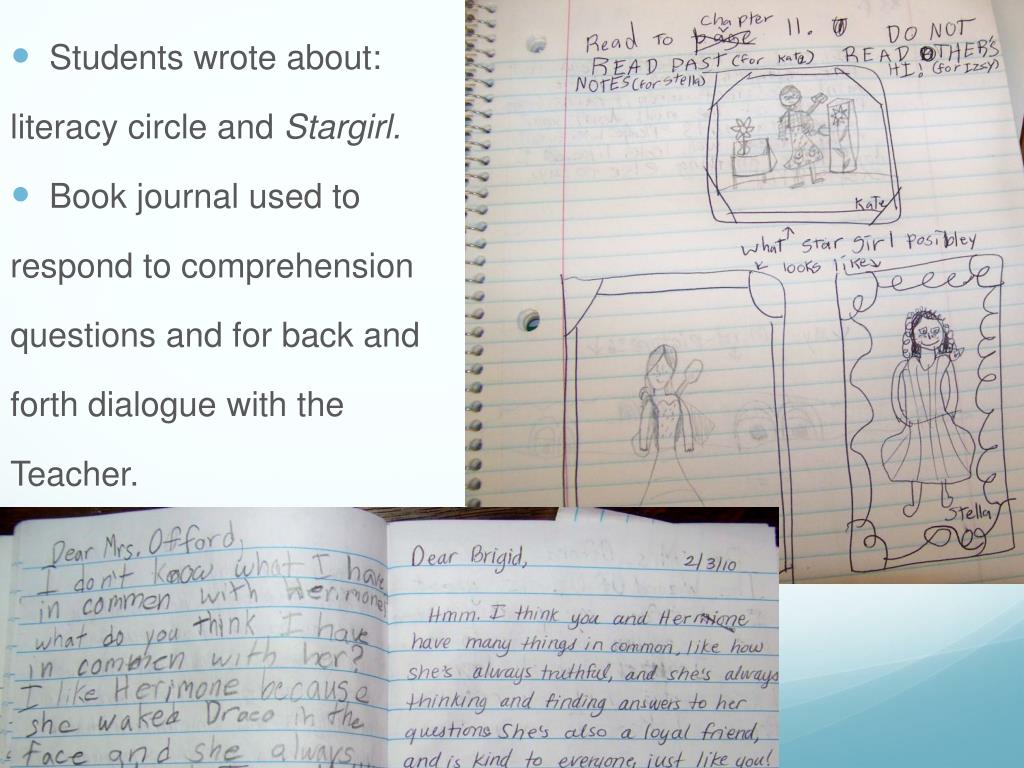 Students wrote about:
literacy circle and Stargirl.
Book journal used to
respond to comprehension
questions and for back and
forth dialogue with the
Teacher.
chapter
Read To page 11. DO NOT
READ PAST (for Kate) READ OTHER'S
NOTES (for Stella) HI! (for Izsy)
Kate
what star girl posibley
looks like
Stella
Dear Mrs. Offord,
I don't know what I have
in commen with Herimone
what do you think I have
in commen with her?
I like Herimone because
she waked Draco in the
face and she always
Dear Brigid,
2/3/10
Hmm. I think you and Hermione
have many things in common, like how
she's always truthful, and she's always
thinking and finding answers to her
questions She's also a loyal friend,
and is kind to everyone, just like you!